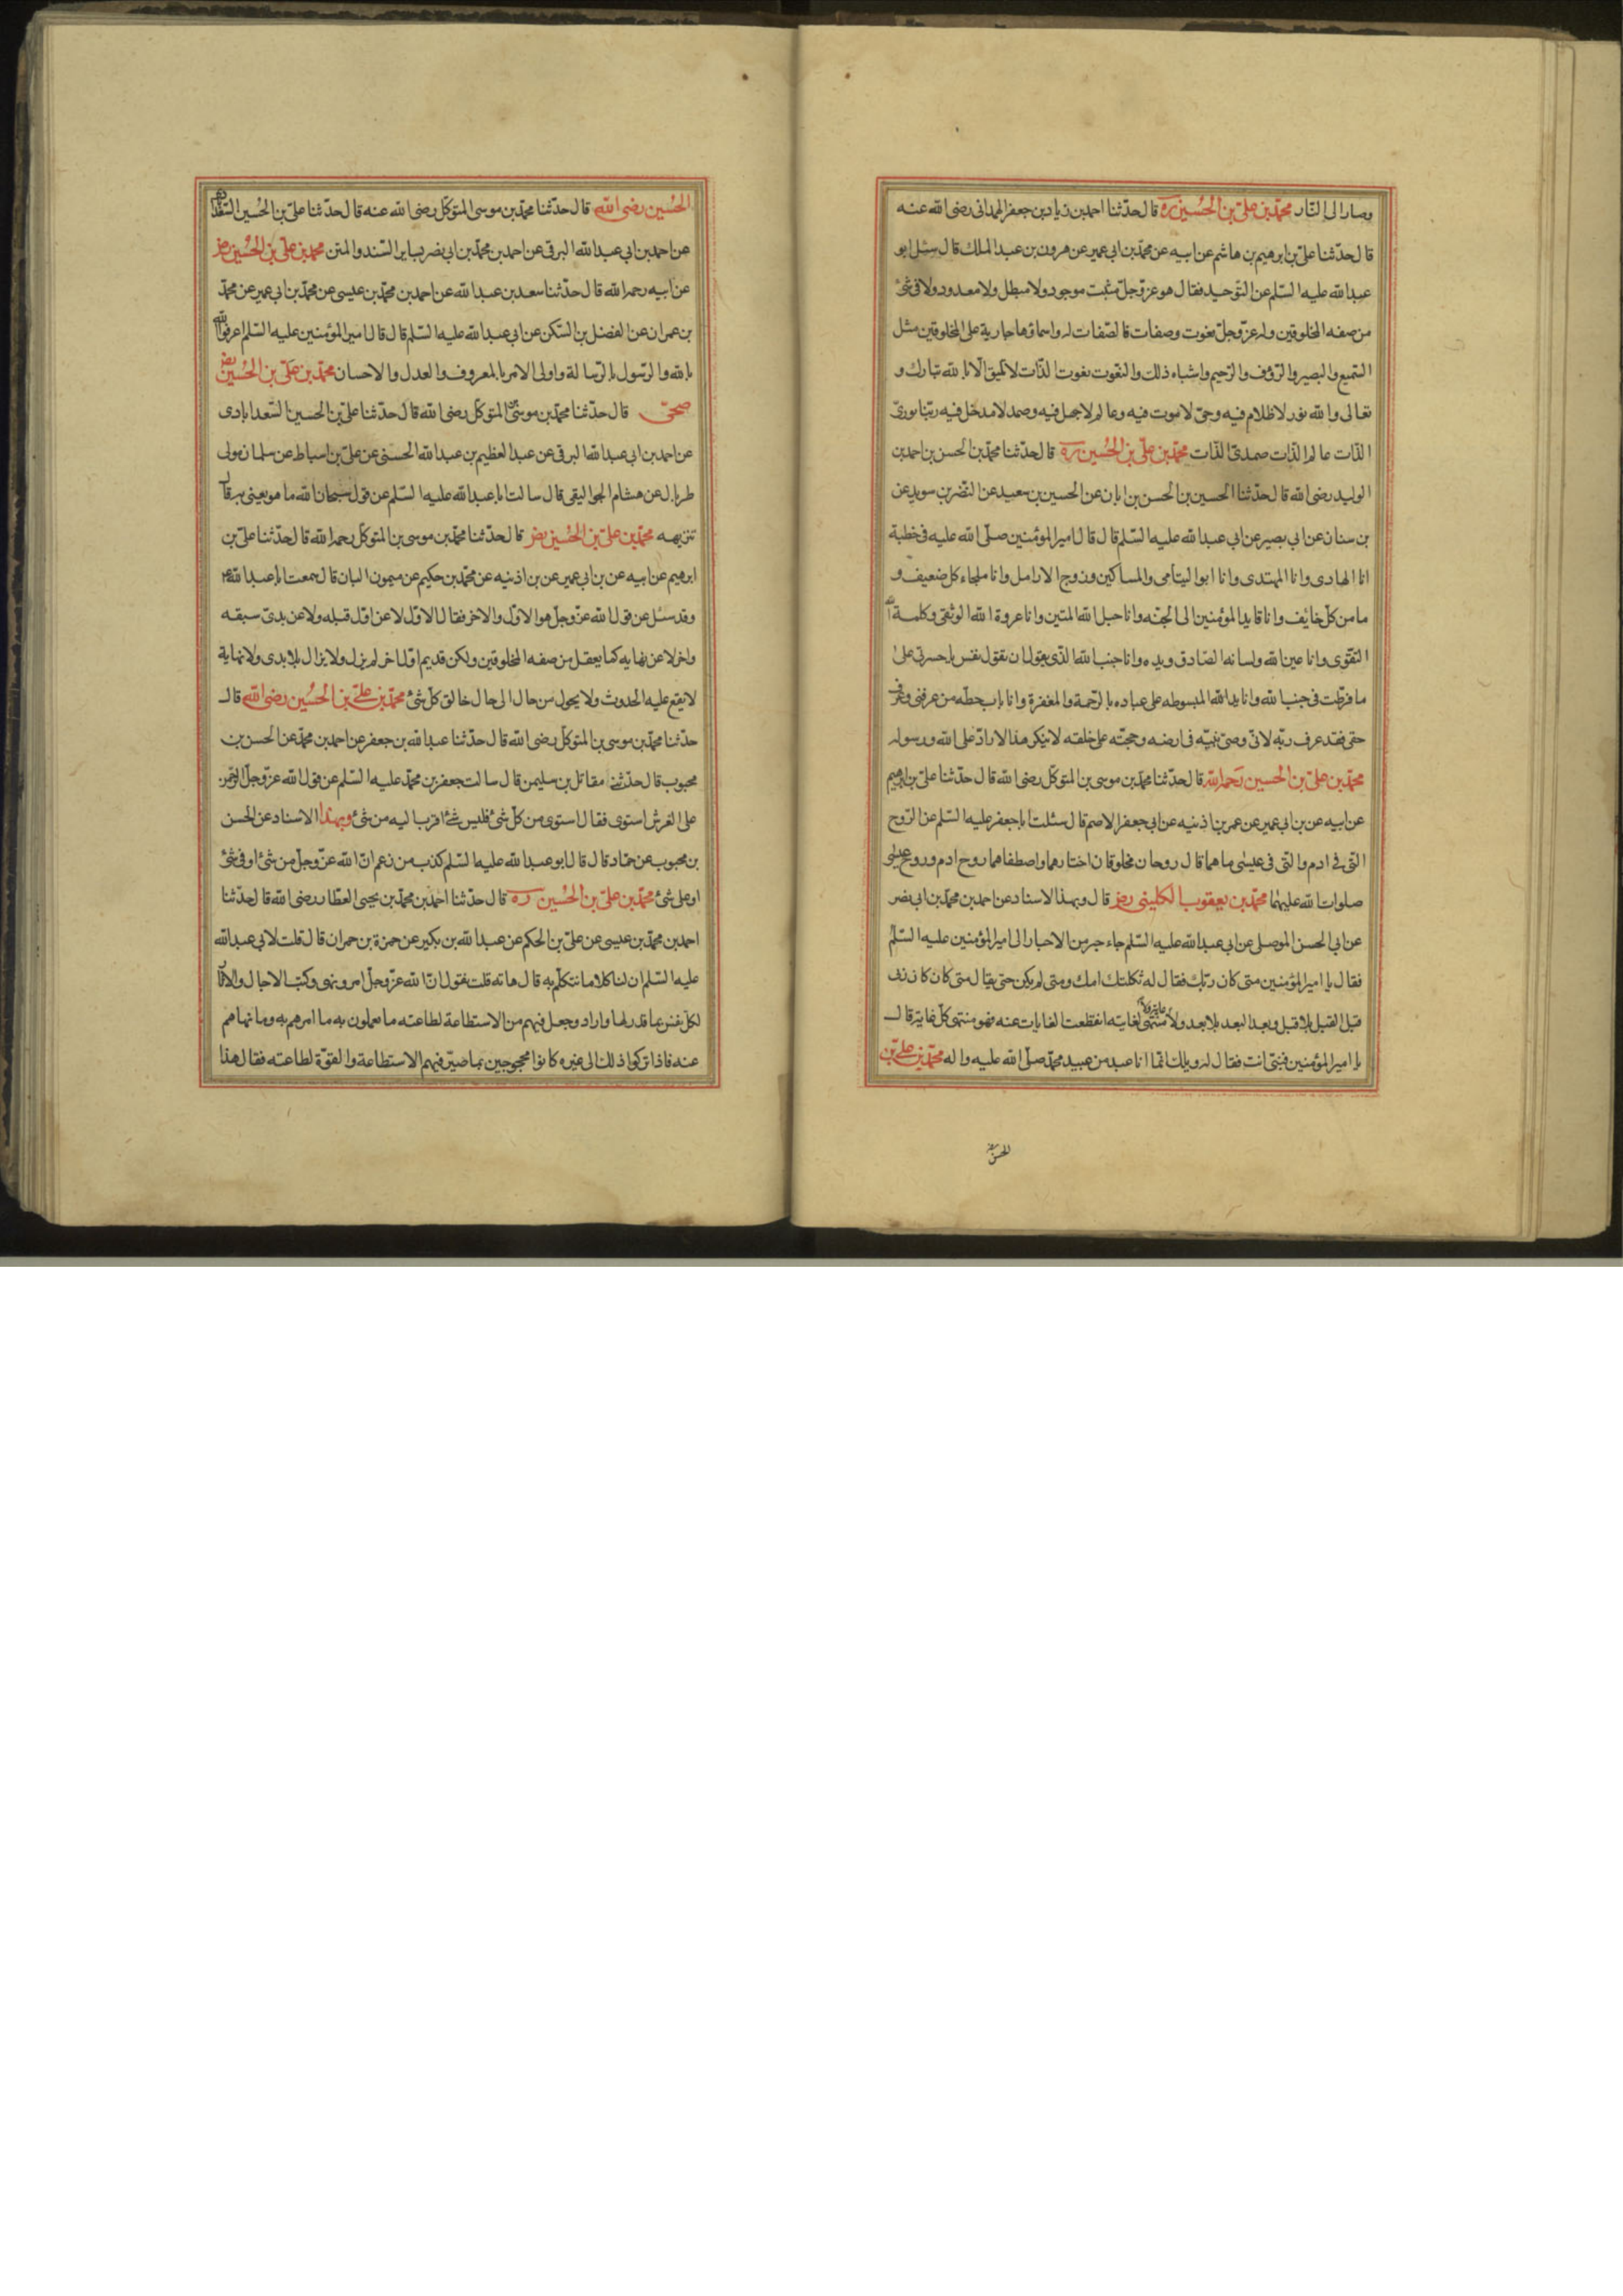 وصار الى النار محمد بن علي بن الحسين ره قال حدثنا احمد بن زياد بن جعفر الهمداني رضى الله عنه
قال حدثنا علي بن ابرهيم بن هاشم عن ابيه عن محمد بن ابي عمير عن هرون بن عبد الملك قال سئل ابو
عبد الله عليه السلم عن التوحيد فقال هو عز وجل مثبت موجود ولا مبطل ولا معدود ولا في شئ
من صفه المخلوقين وله عز وجل نعوت وصفات فالصفات له واسماؤها جارية على المخلوقين مثل
السميع والبصير والرؤف والرحيم واشباه ذلك والنعوت نعوت الذات لا تليق الا بالله تبارك و
تعالى والله نور لا ظلام فيه وحي لا موت فيه وعالم لا جهل فيه وصمد لا مدخل فيه ربنا نوري
الذات عالم الذات صمدي الذات محمد بن علي بن الحسين ره قال حدثنا محمد بن الحسن بن احمد بن
الوليد رضى الله قال حدثنا الحسين بن الحسن بن ابان عن الحسين بن سعيد عن النضر بن سويد عن
بن سنان عن ابي بصير عن ابي عبد الله عليه السلم قال قال امير المؤمنين صلى الله عليه في خطبة
انا الهادى وانا المهتدى وانا ابو اليتامى والمساكين وزوج الارامل وانا ملجاء كل ضعيف و
مامن كل خايف وانا قايد المؤمنين الى الجنه وانا حبل الله المتين وانا عروة الله الوثقى وكلمة الله
التقوى وانا عين الله ولسانه الصادق ويده وانا جنب الله الذى يقول ان تقول نفس يا حسرتى على
ما فرطت في جنب الله وانا يد الله المبسوطه على عباده بالرحمة والمغفرة وانا باب حطه من عرفنى وعرف
حقى فقد عرف ربه لانى وصى نبيه في ارضه وحجته على خلقه لا ينكر هذا الا راد على الله ورسوله
محمد بن علي بن الحسين رحمه الله قال حدثنا محمد بن موسى بن المتوكل رضى الله قال حدثنا علي بن ابرهيم
عن ابيه عن بن ابي عمير عن عمر بن اذنيه عن ابي جعفر الاصم قال سئلت با جعفر عليه السلم عن الروح
التى في ادم والتى في عيسى ما هما قال روحان مخلوقان اختارهما واصطفاهما روح ادم وروح عيسى
صلوات الله عليهما محمد بن يعقوب الكلينى رض قال وبهذا الاسناد عن احمد بن محمد بن ابي نصر
عن ابي الحسن الموصلى عن ابي عبد الله عليه السلم جاء حبر من الاحبار الى امير المؤمنين عليه السلم
فقال يا امير المؤمنين متى كان ربك فقال له ثكلتك امك ومتى لم يكن حتى يقال متى كان كان ربى
قبل القبل بلا قبل وبعد البعد بلا بعد ولا غاية ولا منتهى لغايته انقطعت الغايات عنه فهو منتهى كل غاية قال
يا امير المؤمنين فنبى انت فقال له ويلك انما انا عبد من عبيد محمد صلى الله عليه واله محمد بن علي بن
الحسين
الحسين رضى الله قال حدثنا محمد بن موسى المتوكل رضى الله عنه قال حدثنا علي بن الحسين
عن احمد بن ابي عبد الله البرقى عن احمد بن محمد بن ابي نصر بساير السند والمتن محمد بن علي بن الحسين رض
عن ابيه رحمه الله قال حدثنا سعد بن عبد الله عن احمد بن محمد بن عيسى عن محمد بن ابي عمير عن محمد
بن عمران عن الفضل بن السكن عن ابي عبد الله عليه السلم قال قال امير المؤمنين عليه السلم اعرفوا الله
بالله والرسول بالرسالة واولى الامر بالمعروف والعدل والاحسان محمد بن علي بن الحسين رض
قال حدثنا محمد بن موسى المتوكل رضى الله قال حدثنا علي بن الحسين السعدابادى
عن احمد بن ابي عبد الله البرقى عن عبد العظيم بن عبد الله الحسنى عن علي بن اسباط عن سلمان مولى
طربال عن هشام الجواليقى قال سالت با عبد الله عليه السلم عن قول سبحان الله ما هو يعنى به قال
تنزيهه محمد بن علي بن الحسين رض قال حدثنا محمد بن موسى بن المتوكل رحمه الله قال حدثنا علي بن
ابرهيم عن ابيه عن بن ابي عمير عن بن اذنيه عن محمد بن حكيم عن ميمون البان قال سمعت با عبد الله ع
وقد سئل عن قول الله عز وجل هو الاول والاخر فقال الاول لا عن اول قبله ولا عن بدئ سبقه
واخر لا عن نهايه كما يعقل من صفه المخلوقين ولكن قديم اول اخر لم يزل ولا يزال بلا بدى ولا نهاية
لا يقع عليه الحدوث ولا يحول من حال الى حال خالق كل شئ محمد بن علي بن الحسين رضى الله قال
حدثنا محمد بن موسى بن المتوكل رضى الله قال حدثنا عبد الله بن جعفر عن احمد بن محمد عن الحسن بن
محبوب قال حدثنى مقاتل بن سليمن قال سالت جعفر بن محمد عليه السلم عن قول الله عز وجل الرحمن
على العرش استوى فقال استوى من كل شئ فليس شئ اقرب اليه من شئ وبهذا الاسناد عن الحسن
بن محبوب عن حماد قال قال ابو عبد الله عليه السلم كذب من زعم ان الله عز وجل من شئ او في شئ
او على شئ محمد بن علي بن الحسين ره قال حدثنا احمد بن محمد بن يحيى العطار رضى الله قال حدثنا
احمد بن محمد بن عيسى عن علي بن الحكم عن عبد الله بن بكير عن حمزة بن حمران قال قلت لابى عبد الله
عليه السلم ان لنا كلاما نتكلم به قال هاته قلت نقول ان الله عز وجل امر ونهى وكتب الاجال والاثار
لكل نفس بما قدر لها واراد وجعل فيهم من الاستطاعة لطاعته ما يعملون به ما امرهم به وما نهاهم
عنه فاذا تركوا ذلك الى غيره كانوا محجوجين بما صير فيهم الاستطاعة والقوة لطاعته فقال هذا